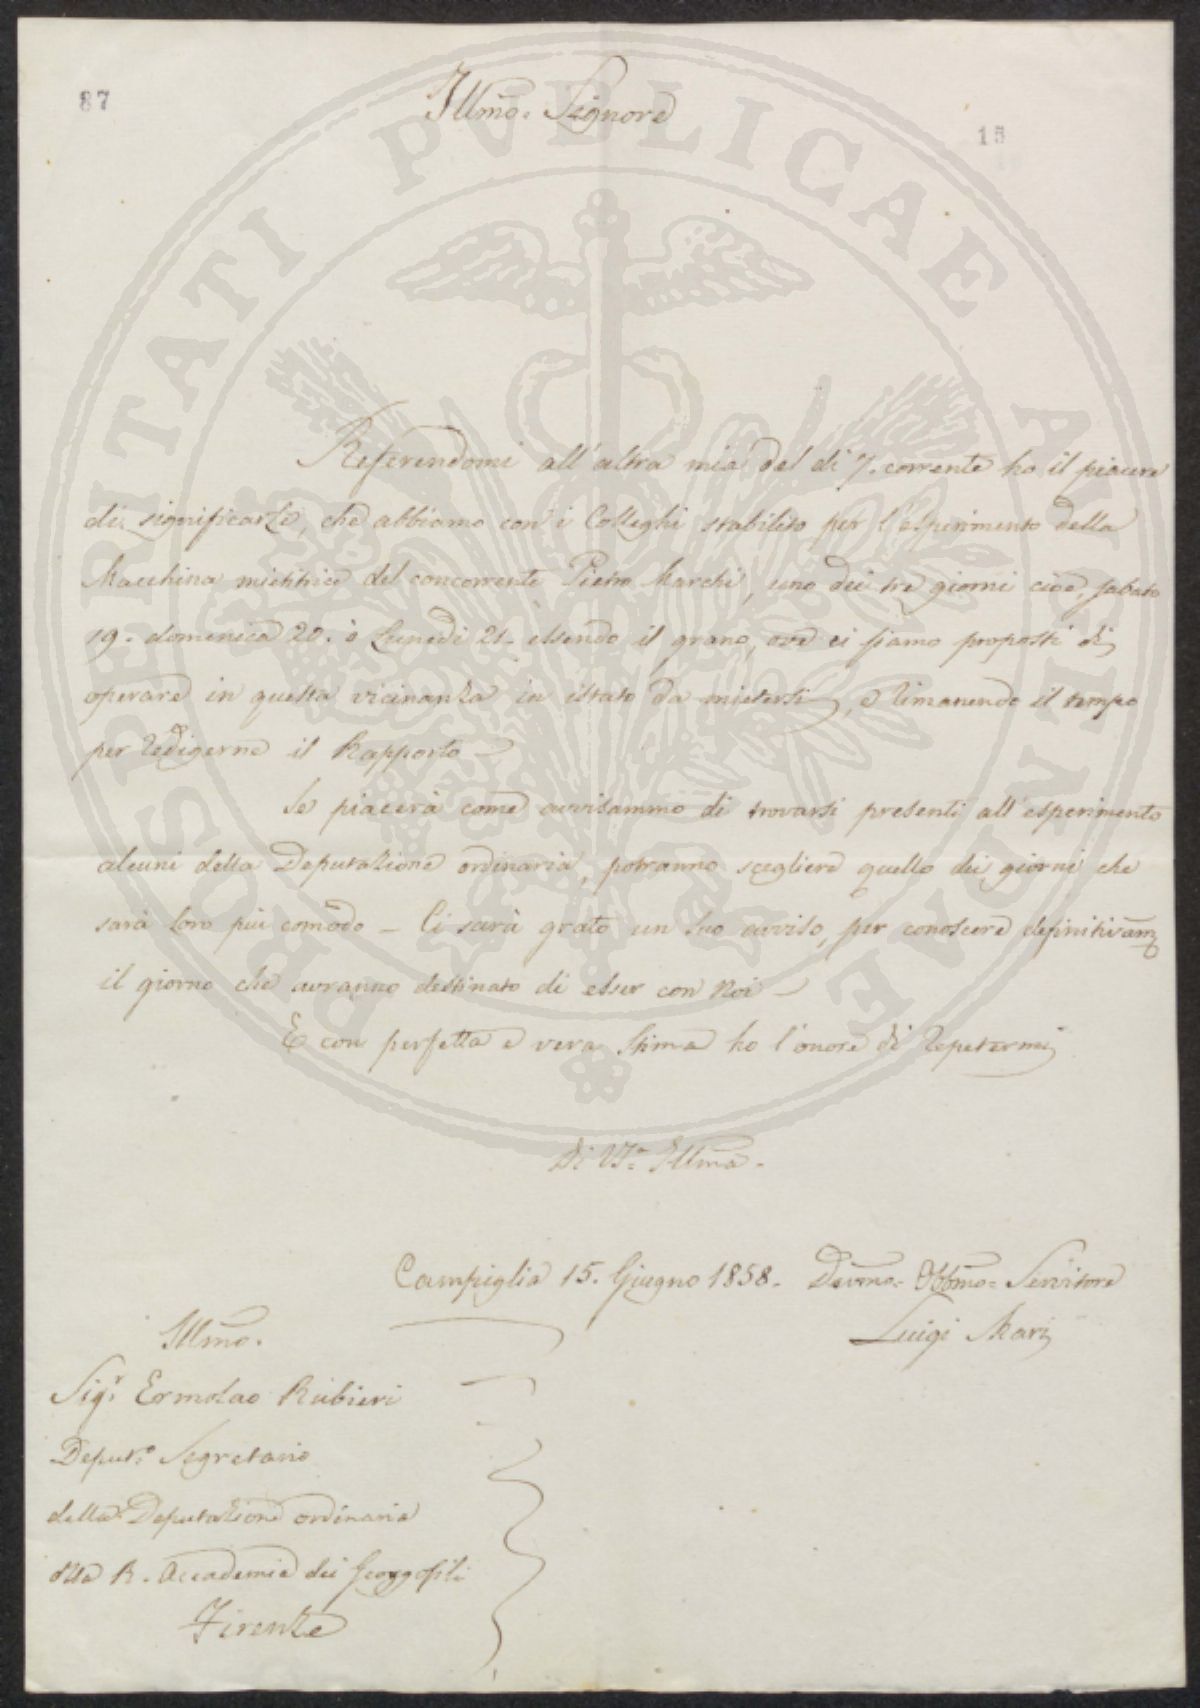 87
Illmo. Signore
15
PROSPERITATI PVBLICAE AVGENDAE
Referendomi all'altra mia del dì 7. corrente ho il piacere
di significarLe, che abbiamo con i Colleghi stabilito per l'esperimento della
Macchina mietitrice del concorrente Pietro Marchi, uno dei tre giorni cioè, sabato
19. domenica 20. o Lunedì 21. essendo il grano, ove ci siamo proposti di
operare in questa vicinanza in istato da mietersi, e rimanendo il tempo
per redigerne il Rapporto —
Se piacerà come avvisammo di trovarsi presenti all'esperimento
alcuni della Deputazione ordinaria, potranno scegliere quello dei giorni che
sarà loro più comodo — Ci sarà grato un suo avviso, per conoscere definitivam
il giorno che avranno destinato di esser con Noi —
E con perfetta e vera stima ho l'onore di repetermi
Di VS. Illma.
Campiglia 15. Giugno 1858. Devmo. Obbmo. Servitore
Luigi Mari
Illmo.
Sigr. Ermolao Rubieri
Deputo. Segretario
della Deputazione ordinaria
della R. Accademia dei Georgofili
Firenze